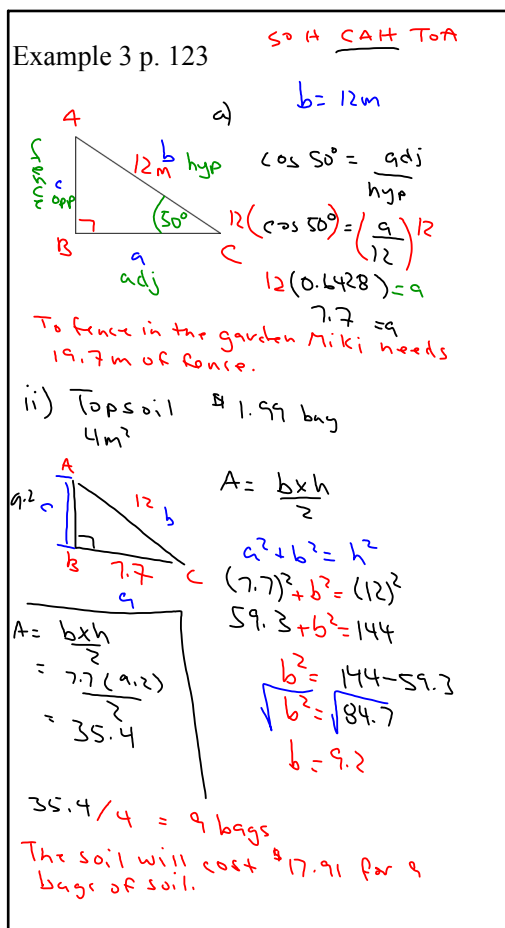 SOH CAH TOA
Example 3 p. 123
a)
b = 12m
A
b
12 m
hyp
c
opp
50°
B
C
a
adj
cos 50° = adj/hyp
12(cos 50°) = (a/12)12
12(0.6428) = a
7.7 = a
To fence in the garden Miki needs
19.7m of fence.
ii) Topsoil $1.99 bag
4m²
A
9.2 c
12 b
B
7.7
C
a
A = bxh/2
a² + b² = h²
(7.7)² + b² = (12)²
59.3 + b² = 144
b² = 144 - 59.3
√b² = √84.7
b = 9.2
A = bxh/2
= 7.7(9.2)/2
= 35.4
35.4/4 = 9 bags
The soil will cost $17.91 for 9
bags of soil.